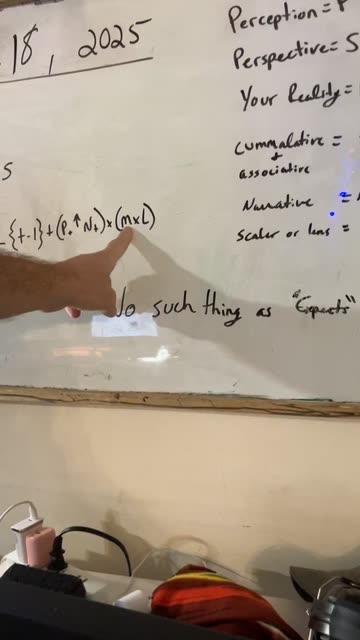 18, 2025
Perception =
Perspective = S
Your Reality =
cummalative =
+
associative
Narrative =
scaler or lens =
S
{t-1} + (P. ↑ N+) x (m x L)
No such thing as "Experts"